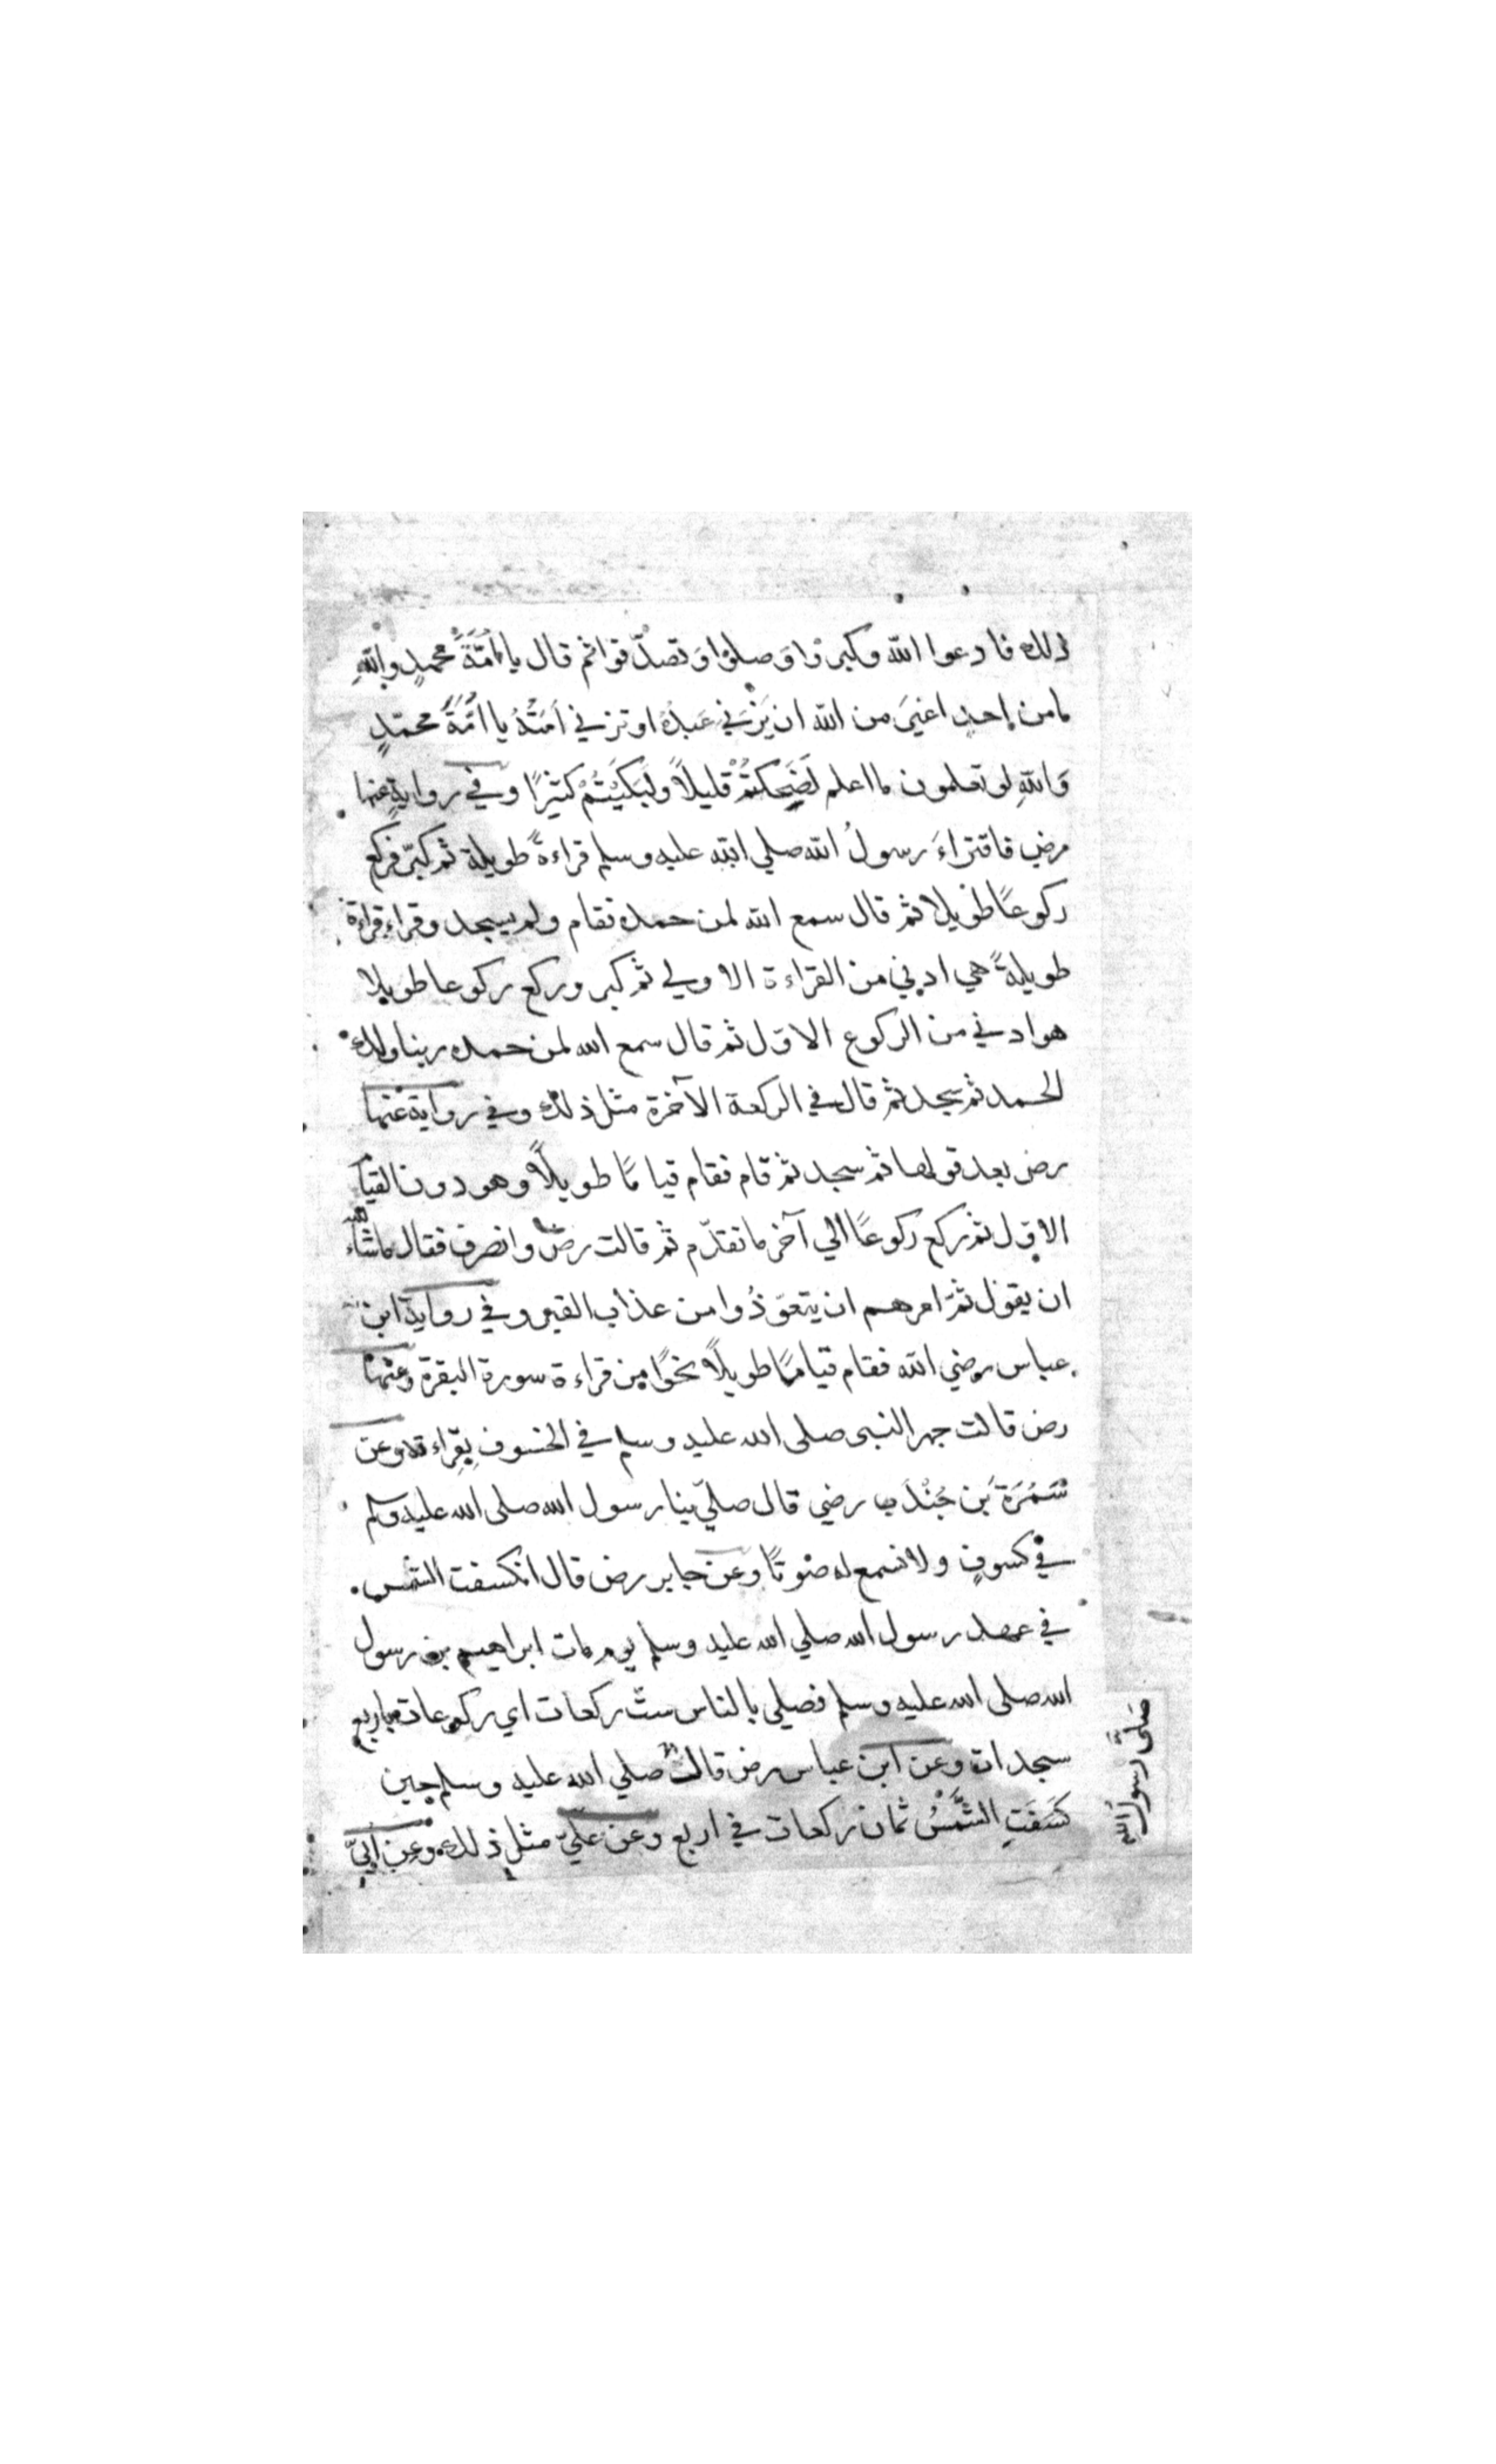 ذلك فادعوا الله وكبروا وصلوا وتصدقوا ثم قال يا اُمَّةَ محمدٍ واللهِ
ما من احدٍ اغيَرَ من الله ان يَزْنَي عَبدُهُ او تزني اَمَتُهُ يا اُمَّةَ محمّدٍ
وَاللهِ لو تعلمون ما اعلم لَضَحِكتُمْ قليلاً ولَبَكَيْتُمْ كثيرًا وفي روايةٍ عنها
رضي فاقتراءَ رسولُ الله صلي الله عليه وسلم قراءةً طويلة ثم كبّر فركع
ركوعًا طويلا ثم قال سمع الله لمن حمده فقام ولم يسجد وقراء قراءة
طويلةً هي ادني من القراءة الاولي ثم كبر وركع ركوعا طويلا
هو ادني من الركوع الاوّل ثم قال سمع الله لمن حمده ربنا ولك
الحمد ثم سجد ثم قال في الركعة الآخرة مثل ذلك وفي رواية عنها
رض بعد قولها ثم سجد ثم قام فقام قيامًا طويلاً وهو دون القيام
الاوّل ثم ركع ركوعًا الي آخر ما تقدّم ثم قالت رض وانصرف فقال ما شاء الله
ان يقول ثمّ امرهم ان يتعوّذُوا من عذاب القبر وفي رواية ابن
عباس رضي الله فقام قيامًا طويلاً نحوًا من قراءة سورة البقرة وعنها
رض قالت جهر النبى صلى الله عليه وسلم في الخسوف بقِراءته وعن
سَمُرَةَ بَن جُنْدَب رضي قال صلّي بنا رسول الله صلى الله عليه وسلم
في كسوفٍ ولا نسمع له صوتًا وعن جابر رض قال انكسفت الشمس
في عهد رسول الله صلي الله عليه وسلم يوم مات ابراهيم بن رسول
الله صلى الله عليه وسلم فصلي بالناس ستّ ركعات اي ركوعات باربع
سجدات وعن ابن عباس رض قال صلي الله عليه وسلم حين
كَسَفَتِ الشَّمْسُ ثمان ركعات في اربع وعن عليّ مثل ذلك وعن اُبيّ
صَلَّى رسولُ الله